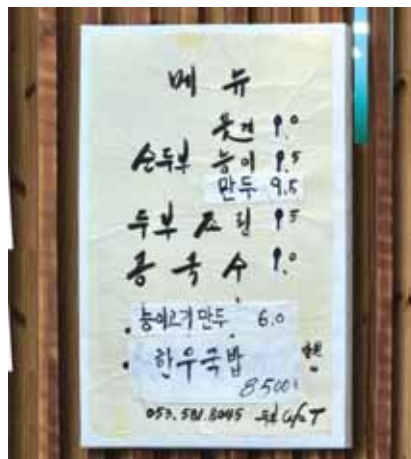 메 뉴
꽃게 9.0
순두부 능이 9.5
만두 9.5
두부 조림 9.5
콩 국 수 9.0
능이고기만두 6.0
한우국밥
8500
053.581.8045